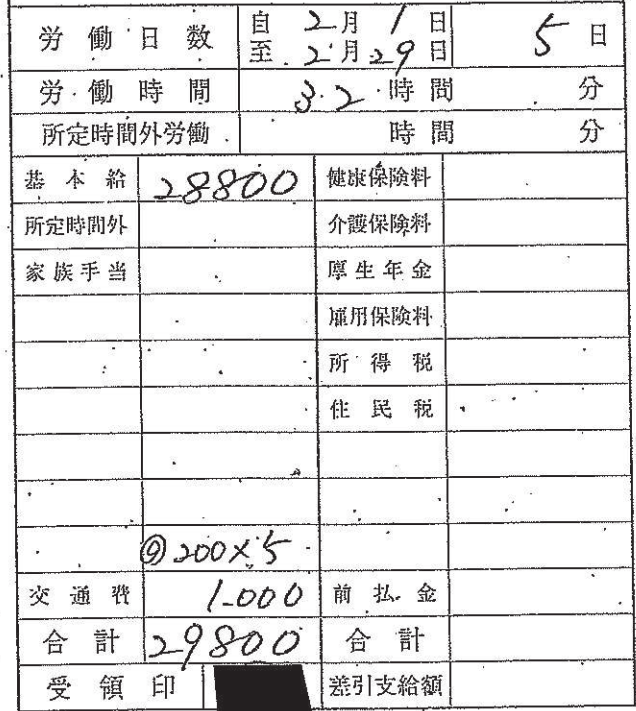 労働日数 自 2月 1日 5日
至 2月29日
労働時間 32時間 分
所定時間外労働 時間 分
基本給 28800 健康保険料
所定時間外 介護保険料
家族手当 厚生年金
雇用保険料
所得税
住民税
@200×5
交通費 1000 前払金
合計 29800 合計
受領印 差引支給額